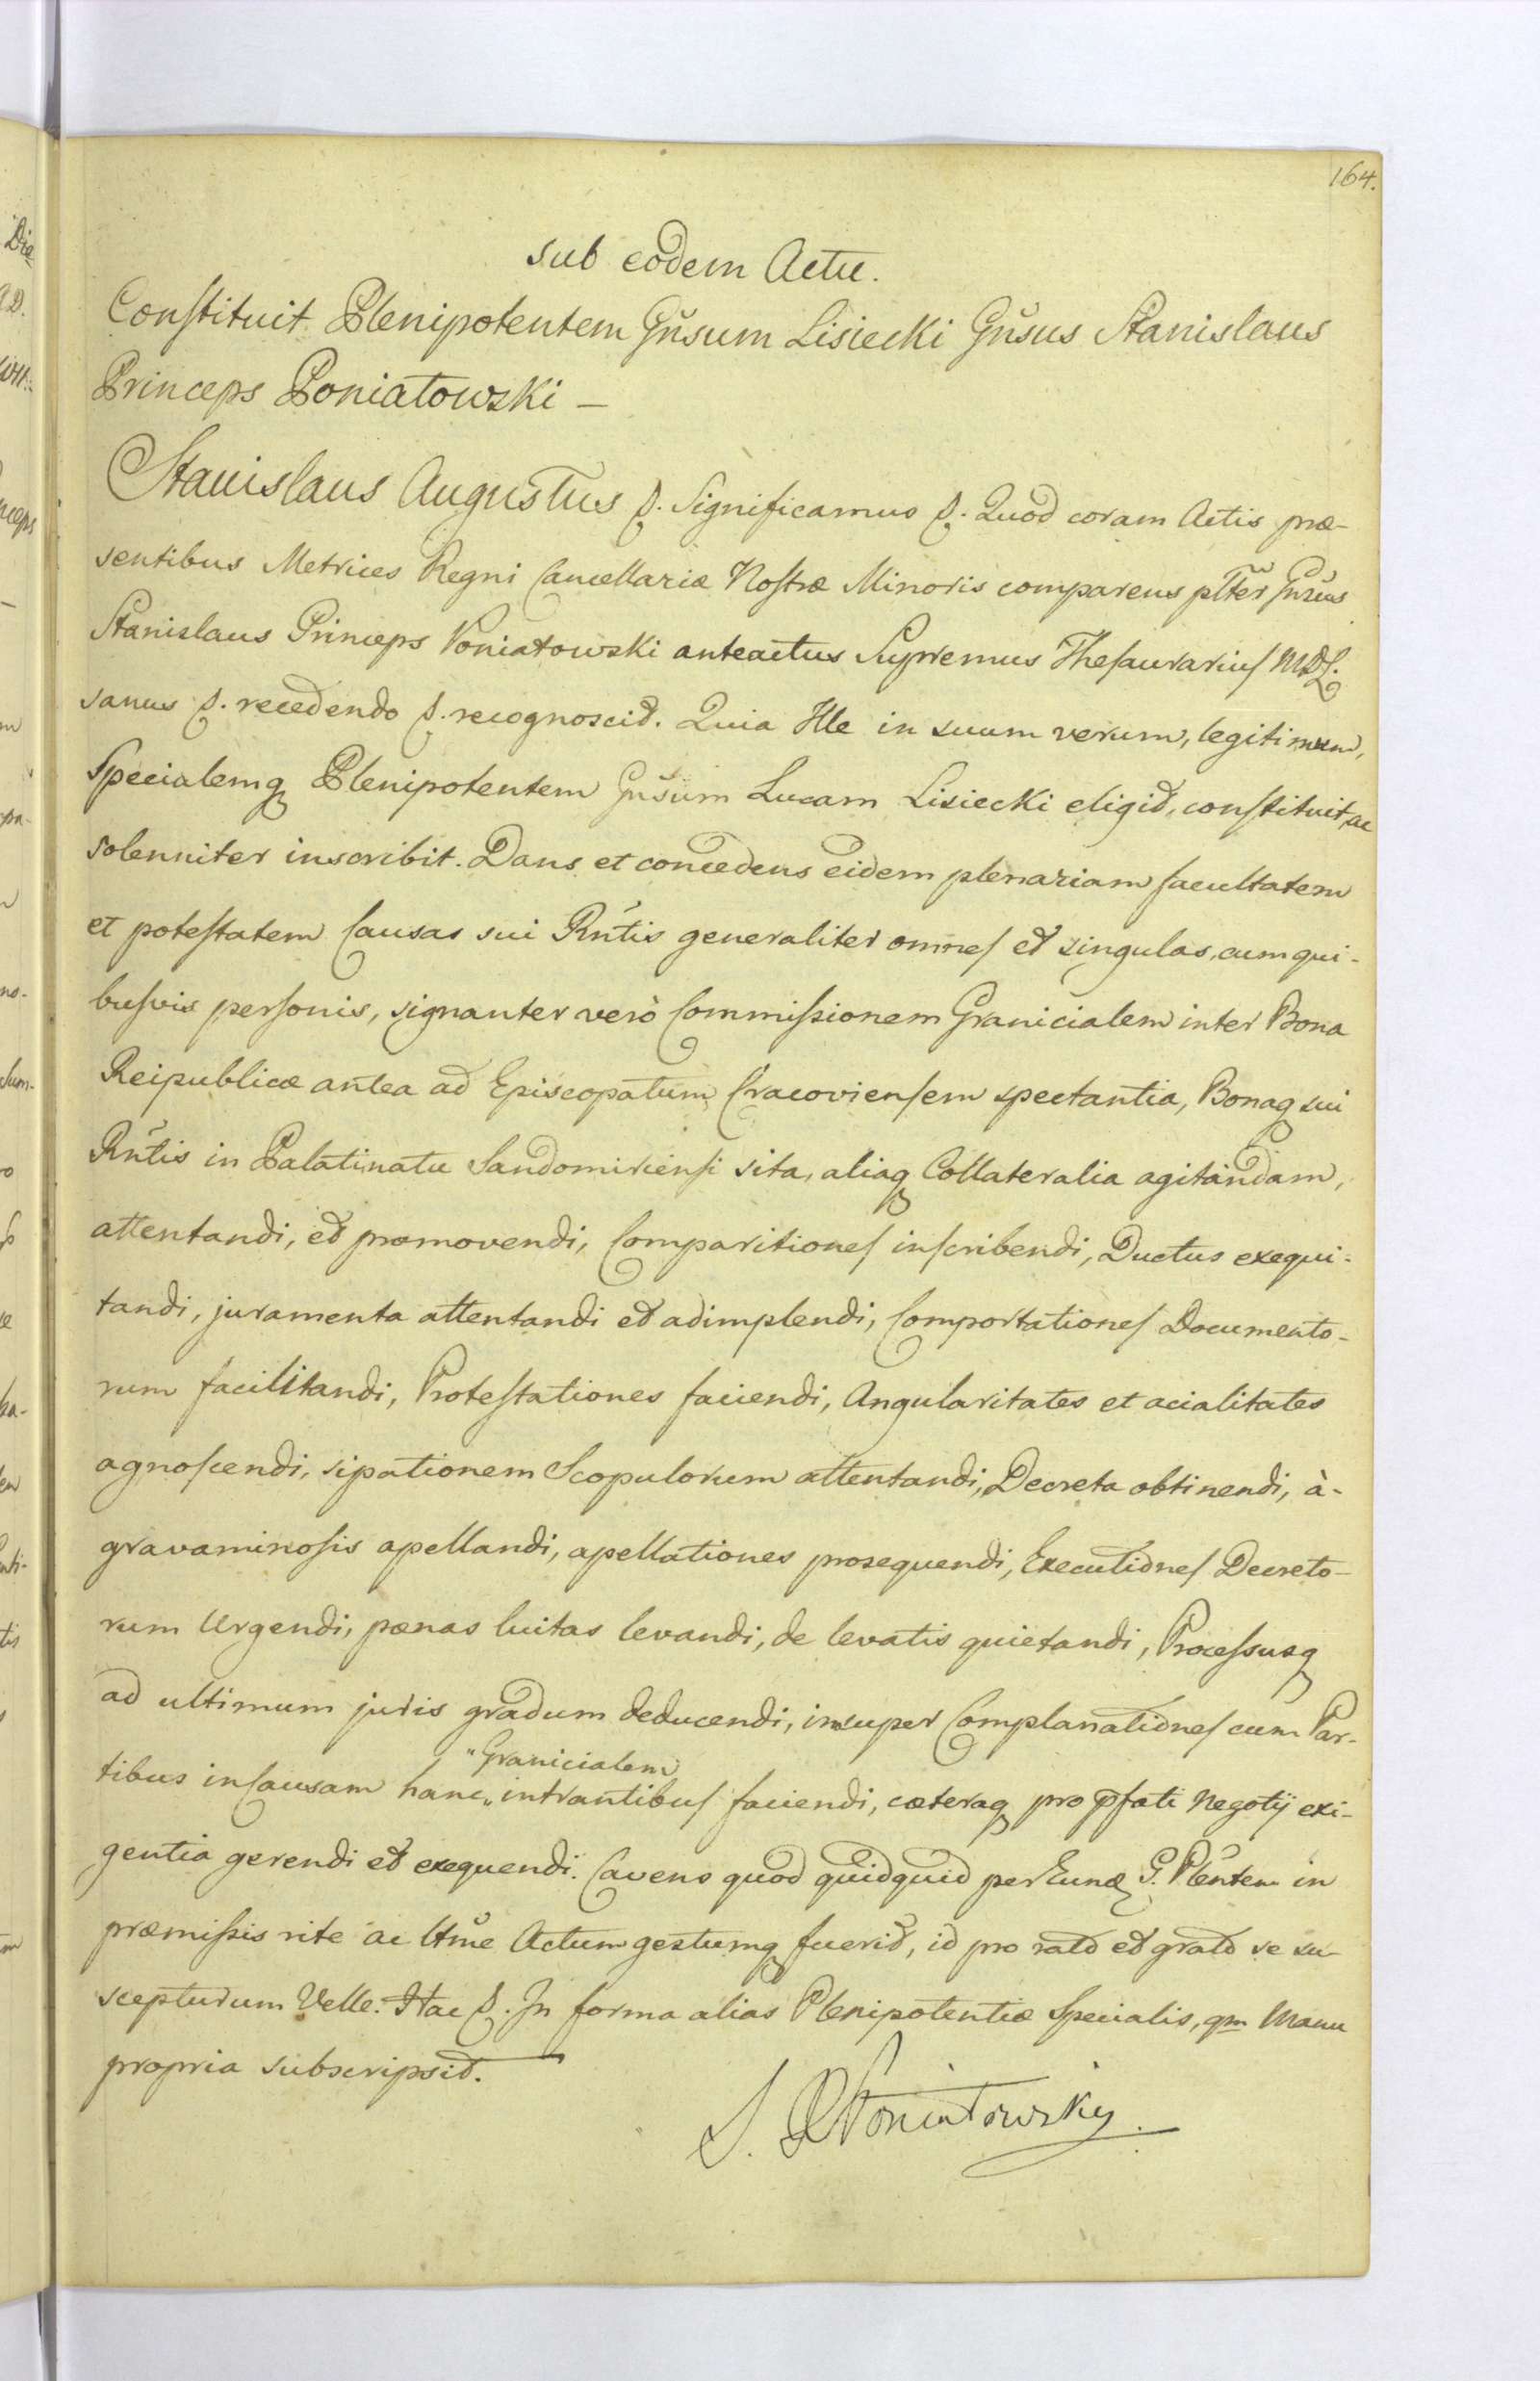 164.
sub eodem Actu.
Constituit Plenipotentem Gnsum Lisiecki Gnsus Stanislaus
Princeps Poniatowski –
Stanislaus Augustus &. Significamus &. Quod coram Actis præ-
sentibus Metrices Regni Cancellariæ Nostræ Minoris comparens pltter Gnsus
Stanislaus Princeps Poniatowski anteactus Supremus Thesaurarius MDL.
sanus &. recedendo &. recognoscit. Quia Ille in suum verum, legitimum,
Specialemq Plenipotentem Gnsum Lucam Lisiecki eligit, constituit, ac
solenniter inscribit. Dans et concedens eidem plenariam facultatem
et potestatem Causas sui Rntis generaliter omnes et singulas, cum qui-
busvis personis, signanter verò Commissionem Granicialem inter Bona
Reipublicæ antea ad Episcopatum Cracoviensem spectantia, Bonaq sui
Rntis in Palatinatu Sandomiriensi sita, aliaq Collateralia agitandam,
attentandi, et promovendi, Comparitiones inscribendi, Ductus exequi-
tandi, juramenta attentandi et adimplendi, Comportationes Documento-
rum facilitandi, Protestationes faciendi, Angularitates et acialitates
agnoscendi, sipationem Scopulorum attentandi, Decreta obtinendi, à-
gravaminosis apellandi, apellationes prosequendi, Executiones Decreto-
rum Urgendi, pœnas luitas levandi, de levatis quietandi, Processusq
ad ultimum juris gradum deducendi, insuper Complanationes cum Par-
"Granicialem
tibus in Causam hanc " intrantibus faciendi, cæteraq pro pfati Negotÿ exi-
gentia gerendi et exequendi. Cavens quod quidquid per Eund G. Plentem in
præmissis rite ac ltme Actum gestumq fuerit, id pro rato et grato se su-
scepturum Velle. Hac &. In forma alias Plenipotentiæ Specialis, qm Manu
propria subscripsit.
S. P Poniatowsky.